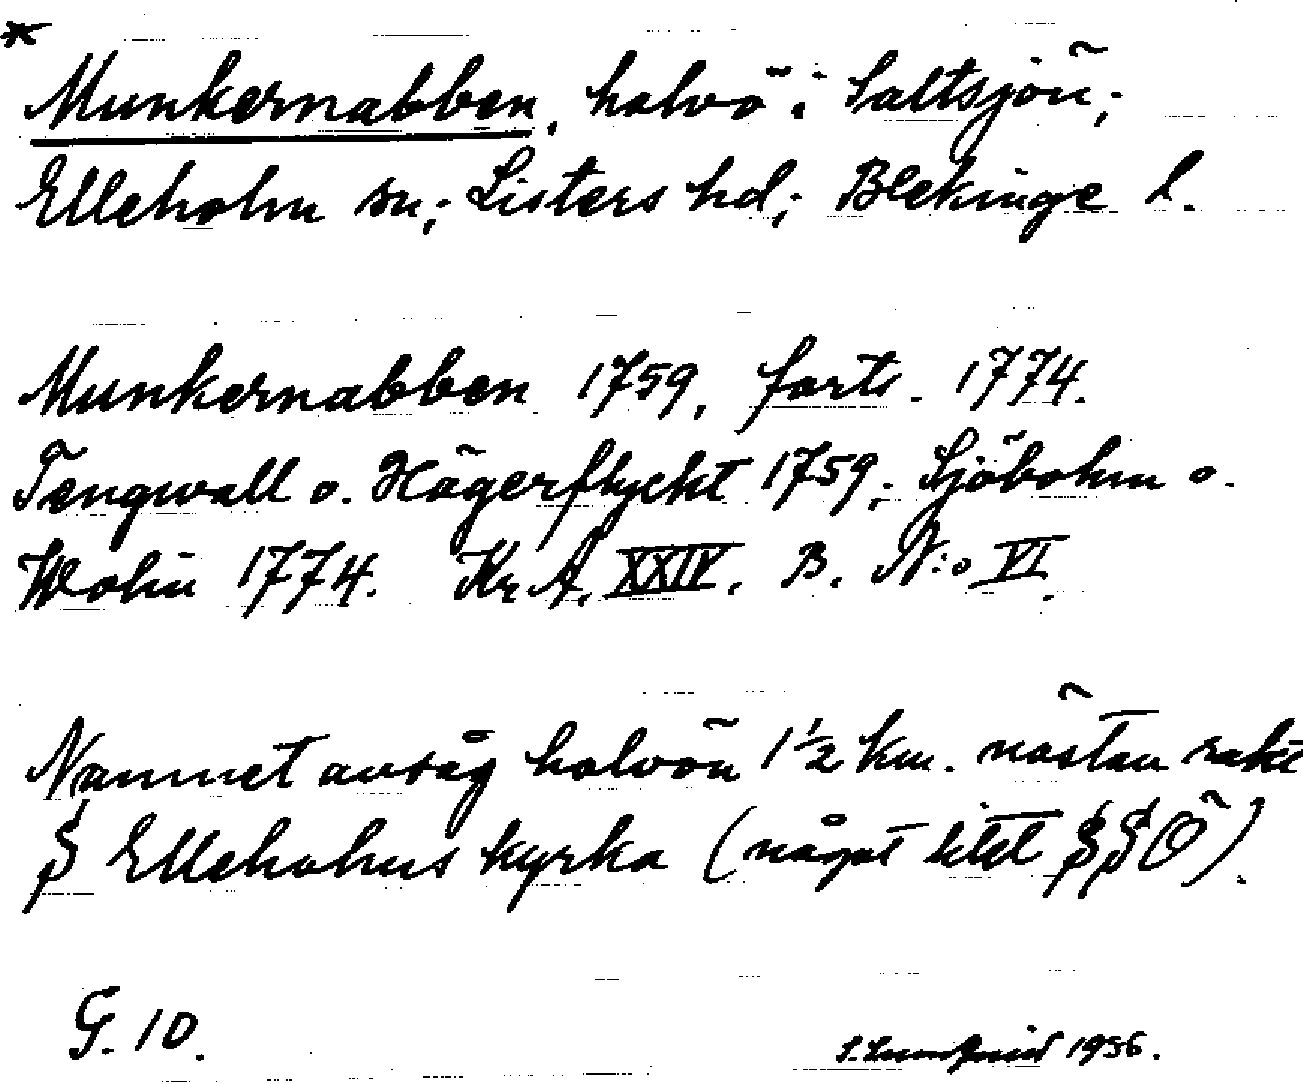 *
Munkernabben, halvö i Saltsjön;
Elleholm sn; Listers hd; Blekinge l.
Munkernabben 1759, forts. 1774.
Tengwall o. Hägerflyckt 1759; Sjöbohm o.
Wolin 1774. Kr A. XXIV. B. N:o VI.
Namnet avsåg halvön 1 1/2 km. nästan rakt
S Elleholms kyrka (något litet SSÖ).
G. 10.
S. Lundquist 1956.